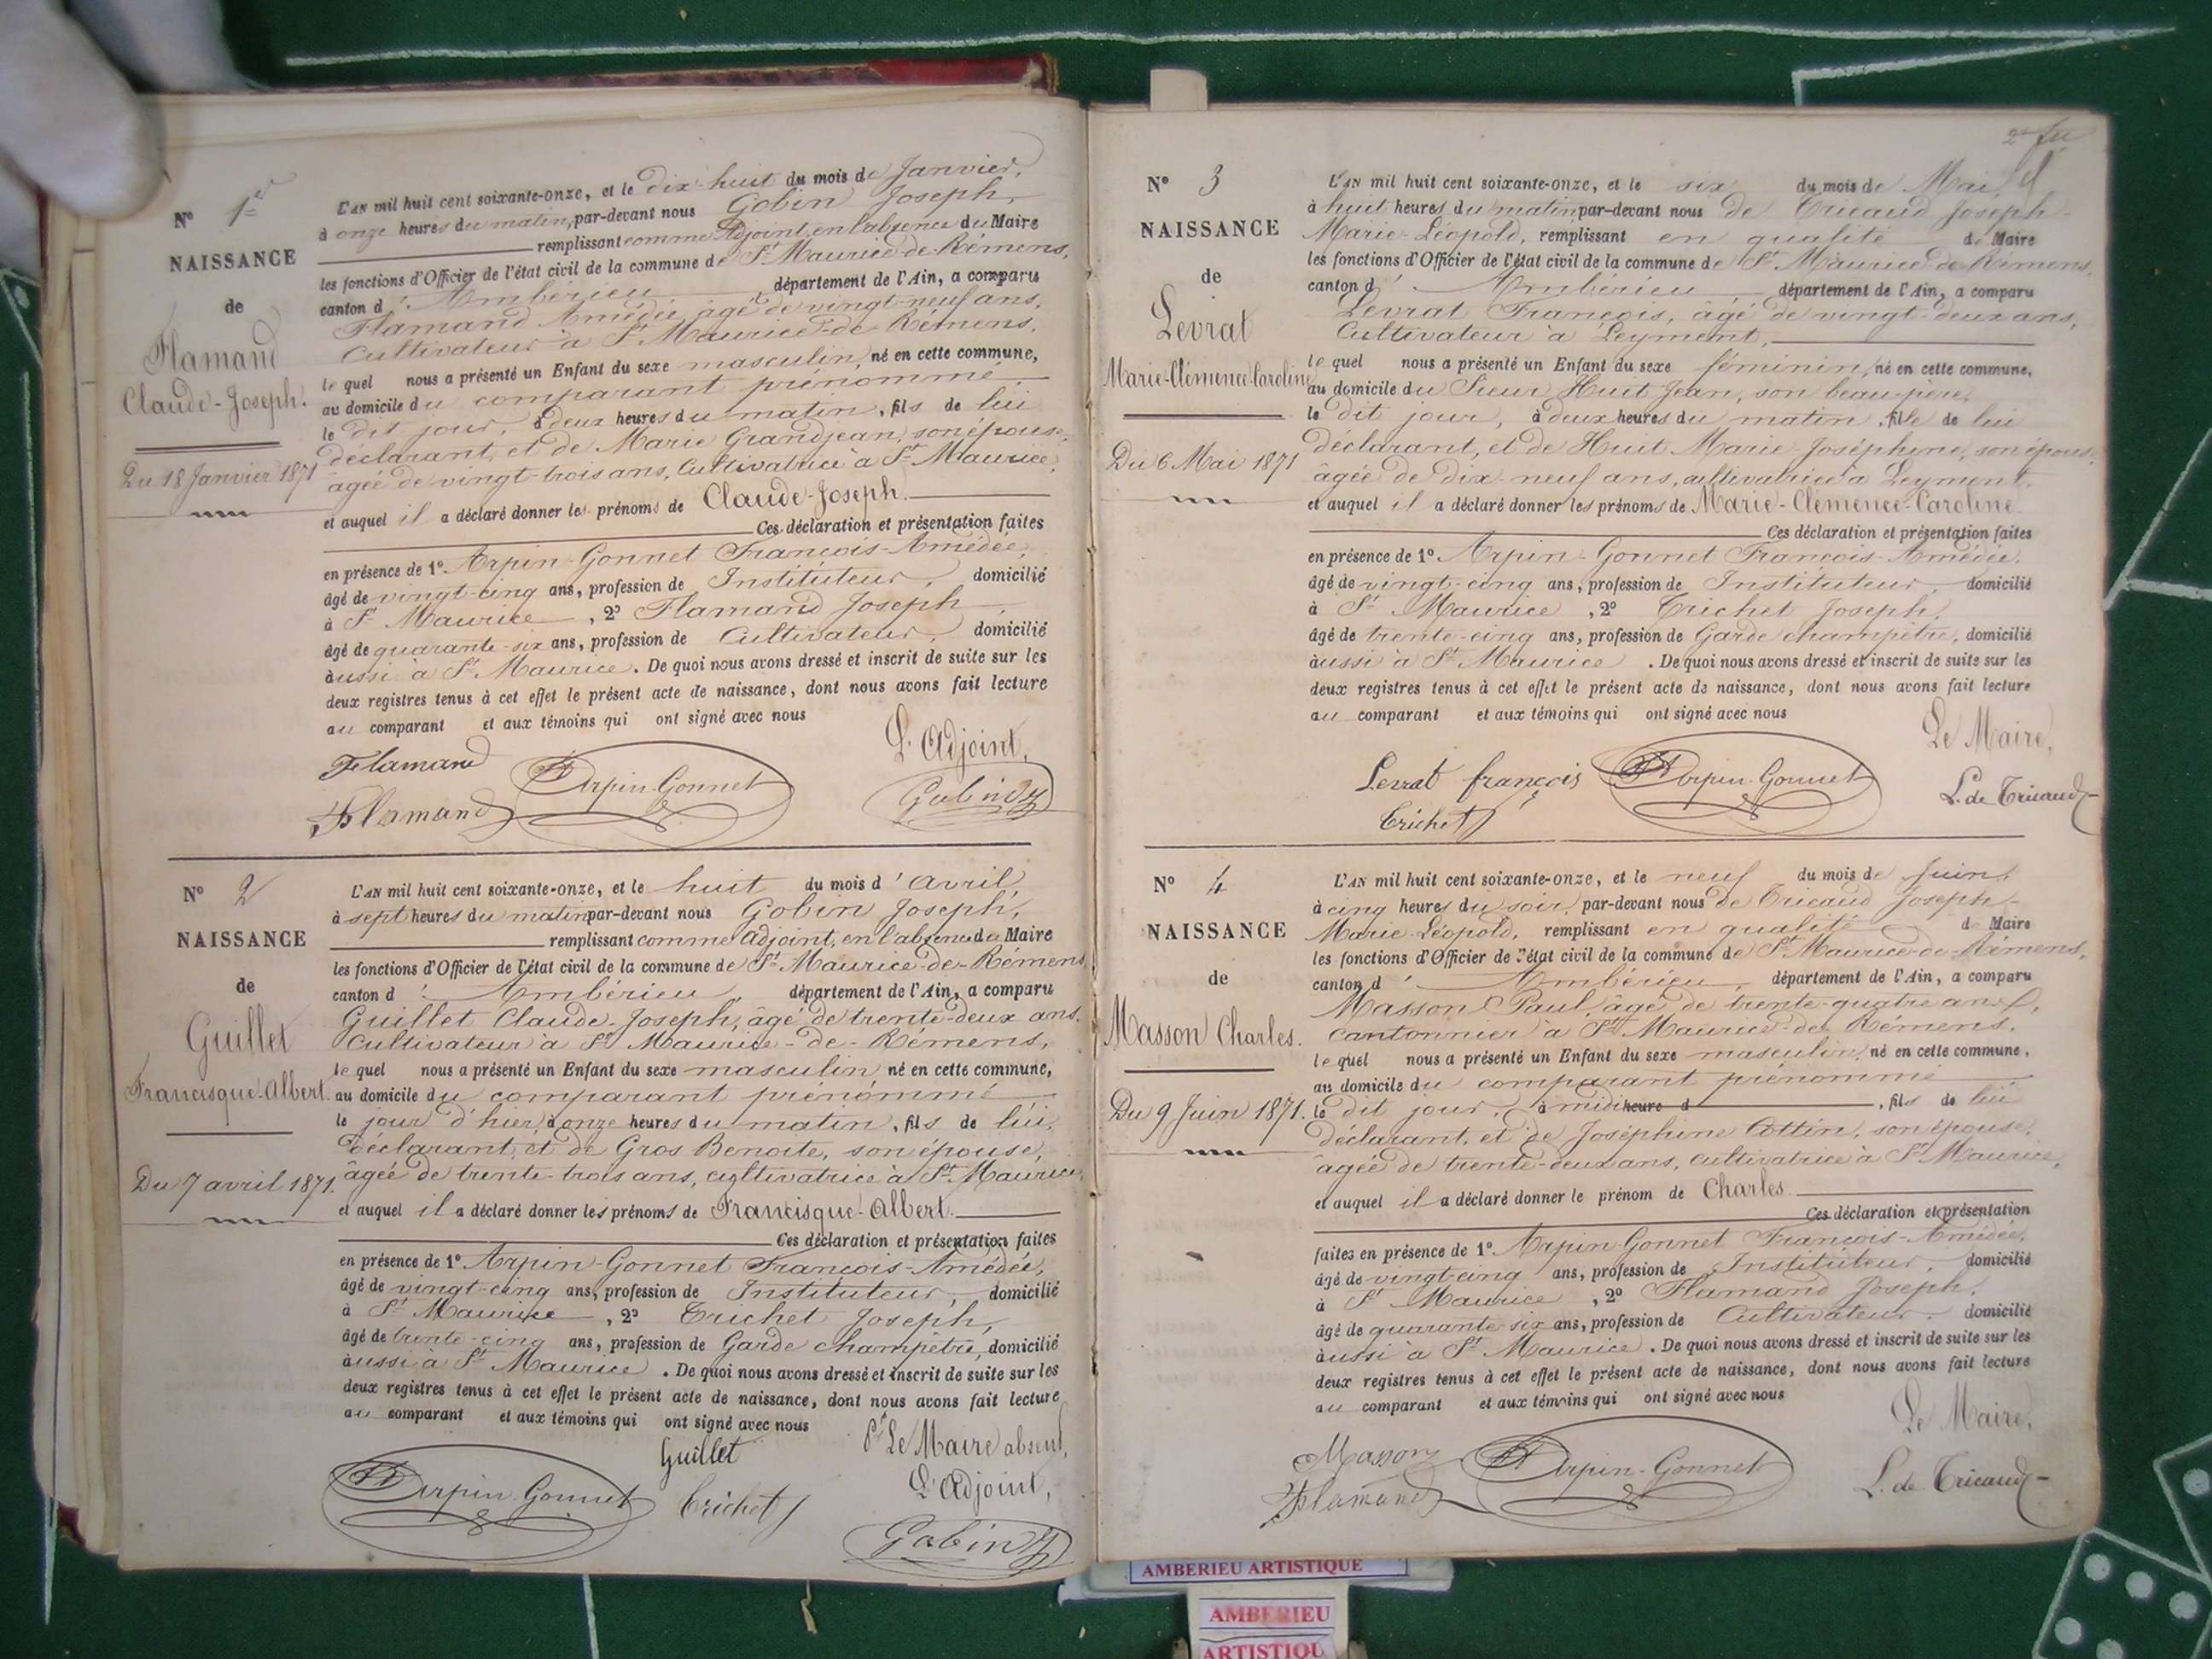 N° 1er
NAISSANCE
de
Flamand
Claude-Joseph.
Du 18 Janvier 1871
L'AN mil huit cent soixante-onze, et le dix-huit du mois de Janvier,
à onze heures du matin, par-devant nous Gobin Joseph,
remplissant comme Adjoint, en l'absence du Maire
les fonctions d'Officier de l'état civil de la commune de St Maurice-de-Rémens,
canton d'Ambérieu, département de l'Ain, a comparu
Flamand Amédée, âgé de vingt-neuf ans,
Cultivateur à St Maurice-de-Rémens.
le quel nous a présenté un Enfant du sexe masculin, né en cette commune,
au domicile du comparant prénommé
le dit jour, à deux heures du matin, fils de lui
déclarant, et de Marie Grandjean, son épouse,
âgée de vingt-trois ans, Cultivatrice à St Maurice,
et auquel il a déclaré donner les prénoms de Claude-Joseph.
Ces déclaration et présentation faites
en présence de 1° Arpin-Gonnet François-Amédée,
âgé de vingt-cinq ans, profession de Instituteur, domicilié
à St Maurice, 2° Flamand Joseph
âgé de quarante-six ans, profession de Cultivateur, domicilié
aussi à St Maurice. De quoi nous avons dressé et inscrit de suite sur les
deux registres tenus à cet effet le présent acte de naissance, dont nous avons fait lecture
au comparant et aux témoins qui ont signé avec nous
L'Adjoint,
Flamand Arpin-Gonnet Gobin
Flamand
N° 2
NAISSANCE
de
Guillet
Francisque-Albert.
Du 7 avril 1871.
L'AN mil huit cent soixante-onze, et le huit du mois d'Avril,
à sept heures du matin par-devant nous Gobin Joseph,
remplissant comme Adjoint, en l'absence du Maire
les fonctions d'Officier de l'état civil de la commune de St Maurice-de-Rémens,
canton d'Ambérieu, département de l'Ain, a comparu
Guillet Claude-Joseph, âgé de trente-deux ans.
Cultivateur à St Maurice-de-Rémens,
le quel nous a présenté un Enfant du sexe masculin né en cette commune,
au domicile du comparant prénommé
le jour d'hier, à onze heures du matin, fils de lui,
déclarant, et de Gros Benoite, son épouse,
âgée de trente-trois ans, cultivatrice à St Maurice,
et auquel il a déclaré donner les prénoms de Francisque-Albert.
Ces déclaration et présentation faites
en présence de 1° Arpin-Gonnet François-Amédée,
âgé de vingt-cinq ans, profession de Instituteur, domicilié
à St Maurice, 2° Trichet Joseph,
âgé de trente-cinq ans, profession de Garde champêtre, domicilié
aussi à St Maurice. De quoi nous avons dressé et inscrit de suite sur les
deux registres tenus à cet effet le présent acte de naissance, dont nous avons fait lecture
au comparant et aux témoins qui ont signé avec nous
Guillet Pr Le Maire absent,
Arpin-Gonnet Trichet L'Adjoint,
Gobin
N° 3
NAISSANCE
de
Levrat
Marie-Clémence-Caroline
Du 6 Mai 1871
L'AN mil huit cent soixante-onze, et le six du mois de Mai
à huit heures du matin, par-devant nous de Tricaud Joseph-
Marie-Léopold, remplissant en qualité de Maire
les fonctions d'Officier de l'état civil de la commune de St Maurice de Rémens,
canton d'Ambérieu, département de l'Ain, a comparu
Levrat François, âgé de vingt-deux ans,
Cultivateur à Leyment,
le quel nous a présenté un Enfant du sexe féminin, né en cette commune,
au domicile du Sieur Huit Jean, son beau-père,
le dit jour, à deux heures du matin, fille de lui
déclarant, et de Huit Marie-Joséphine, son épouse,
âgée de dix-neuf ans, cultivatrice à Leyment.
et auquel il a déclaré donner les prénoms de Marie-Clémence-Caroline.
Ces déclaration et présentation faites
en présence de 1° Arpin-Gonnet François-Amédée,
âgé de vingt-cinq ans, profession de Instituteur, domicilié
à St Maurice, 2° Trichet Joseph,
âgé de trente-cinq ans, profession de Garde champêtre, domicilié
aussi à St Maurice. De quoi nous avons dressé et inscrit de suite sur les
deux registres tenus à cet effet le présent acte de naissance, dont nous avons fait lecture
au comparant et aux témoins qui ont signé avec nous
Le Maire,
Levrat françois Arpin-Gonnet L. de Tricaud
Trichet
N° 4
NAISSANCE
de
Masson Charles.
Du 9 Juin 1871.
L'AN mil huit cent soixante-onze, et le neuf du mois de Juin,
à cinq heures du soir, par-devant nous de Tricaud Joseph-
Marie-Léopold, remplissant en qualité d Maire
les fonctions d'Officier de l'état civil de la commune de St Maurice-de-Rémens,
canton d'Ambérieu, département de l'Ain, a comparu
Masson Paul, âgé de trente-quatre ans,
cantonnier à St Maurice-de-Rémens.
le quel nous a présenté un Enfant du sexe masculin, né en cette commune,
au domicile du comparant prénommé
le dit jour, à midi heure d, fils de lui
déclarant, et de Joséphine Cottin, son épouse,
âgée de trente-deux ans, cultivatrice à St Maurice,
et auquel il a déclaré donner le prénom de Charles.
Ces déclaration et présentation
faites en présence de 1° Arpin-Gonnet François-Amédée,
âgé de vingt-cinq ans, profession de Instituteur, domicilié
à St Maurice, 2° Flamand Joseph,
âgé de quarante-six ans, profession de Cultivateur, domicilié
aussi à St Maurice. De quoi nous avons dressé et inscrit de suite sur les
deux registres tenus à cet effet le présent acte de naissance, dont nous avons fait lecture
au comparant et aux témoins qui ont signé avec nous
Le Maire,
Masson Arpin-Gonnet L. de Tricaud
Flamand
AMBERIEU ARTISTIQUE
AMBERIEU
ARTISTIQU